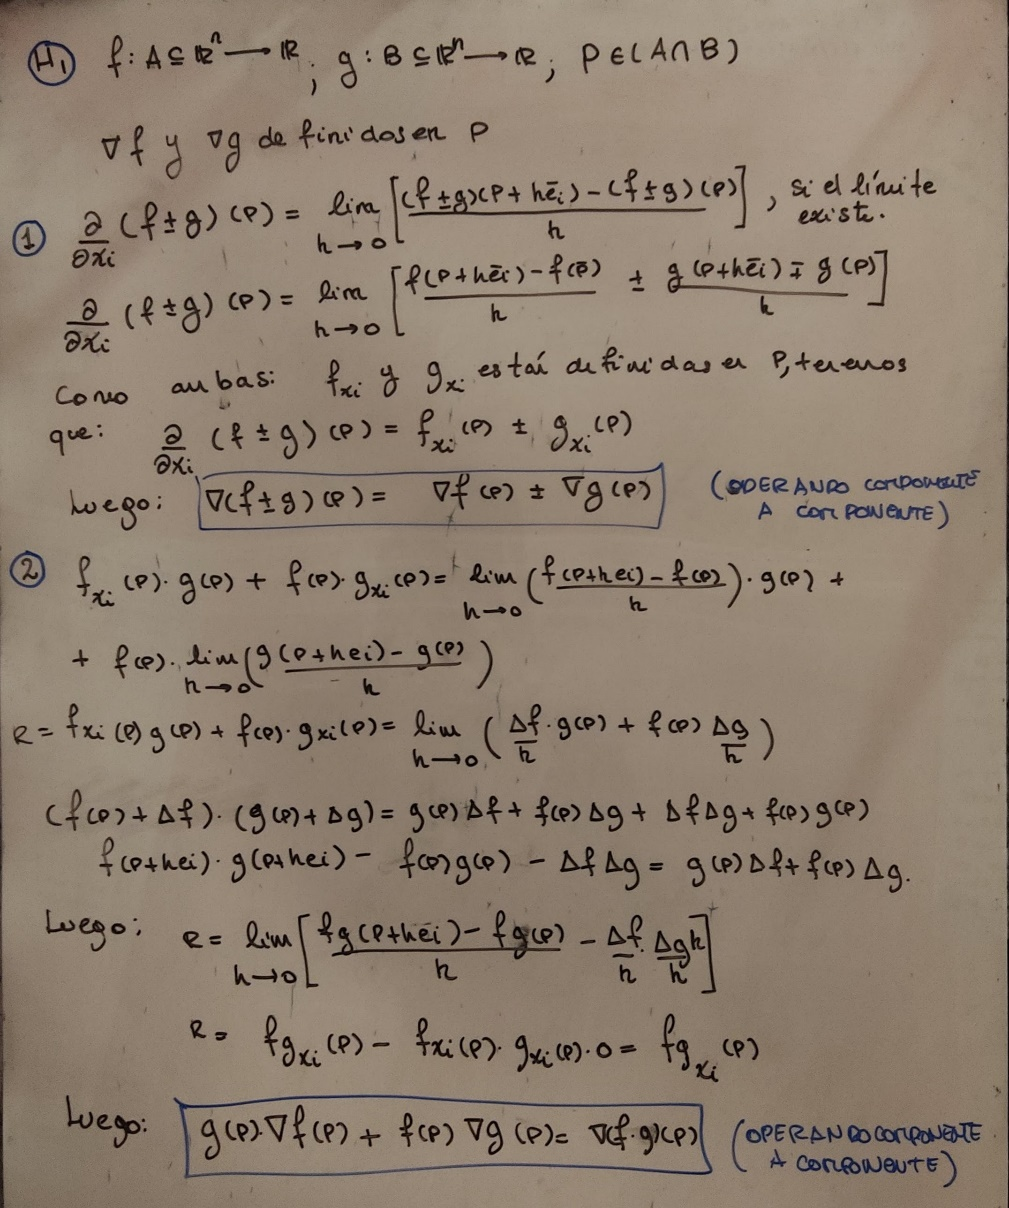 H₁ f: A ⊆ ℝⁿ → ℝ ; g : B ⊆ ℝⁿ → ℝ ; P ∈ (A ∩ B)
∇f y ∇g definidos en P
① ∂/∂xi (f ± g) (P) = lim h→0 [((f ± g)(P + hēi) - (f ± g)(P))/h] , si el límite existe.
∂/∂xi (f ± g) (P) = lim h→0 [(f(P + hēi) - f(P̄))/h ± (g(P+hēi) ∓ g(P))/h]
Como ambas: fxi y gxi está definidas en P, tenemos
que: ∂/∂xi (f ± g) (P) = fxi (P) ± gxi (P)
Luego: ∇(f ± g) (P) = ∇f (P) ± ∇g (P) (OPERANDO COMPONENTE A COMPONENTE)
② fxi (P) · g(P) + f(P) · gxi (P) = lim h→0 ((f(P+hei) - f(P))/h) · g(P) +
+ f(P) · lim h→0 ((g(P+hei) - g(P))/h)
R = fxi (P) g(P) + f(P) · gxi(P) = lim h→0 (Δf/h · g(P) + f(P) Δg/h)
(f(P) + Δf) · (g(P) + Δg) = g(P) Δf + f(P) Δg + Δf Δg + f(P) g(P)
f(P+hei) · g(P+hei) - f(P) g(P) - Δf Δg = g(P) Δf + f(P) Δg.
Luego: R = lim h→0 [(fg(P+hēi) - fg(P))/h - Δf/h · Δg/h h]
R = fgxi (P) - fxi(P) · gxi(P) · 0 = fgxi (P)
Luego: g(P) · ∇f(P) + f(P) ∇g (P) = ∇(f · g)(P) (OPERANDO COMPONENTE A COMPONENTE)